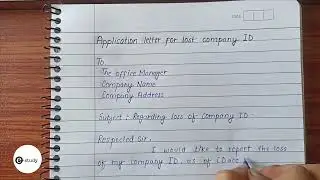 DATE
Application letter for lost company ID
To,
The office Manager
Company Name
Company Address
Subject : Regarding loss of Company ID -
Respected Sir,
I would like to report the loss
of my company ID, as of (Date
e study